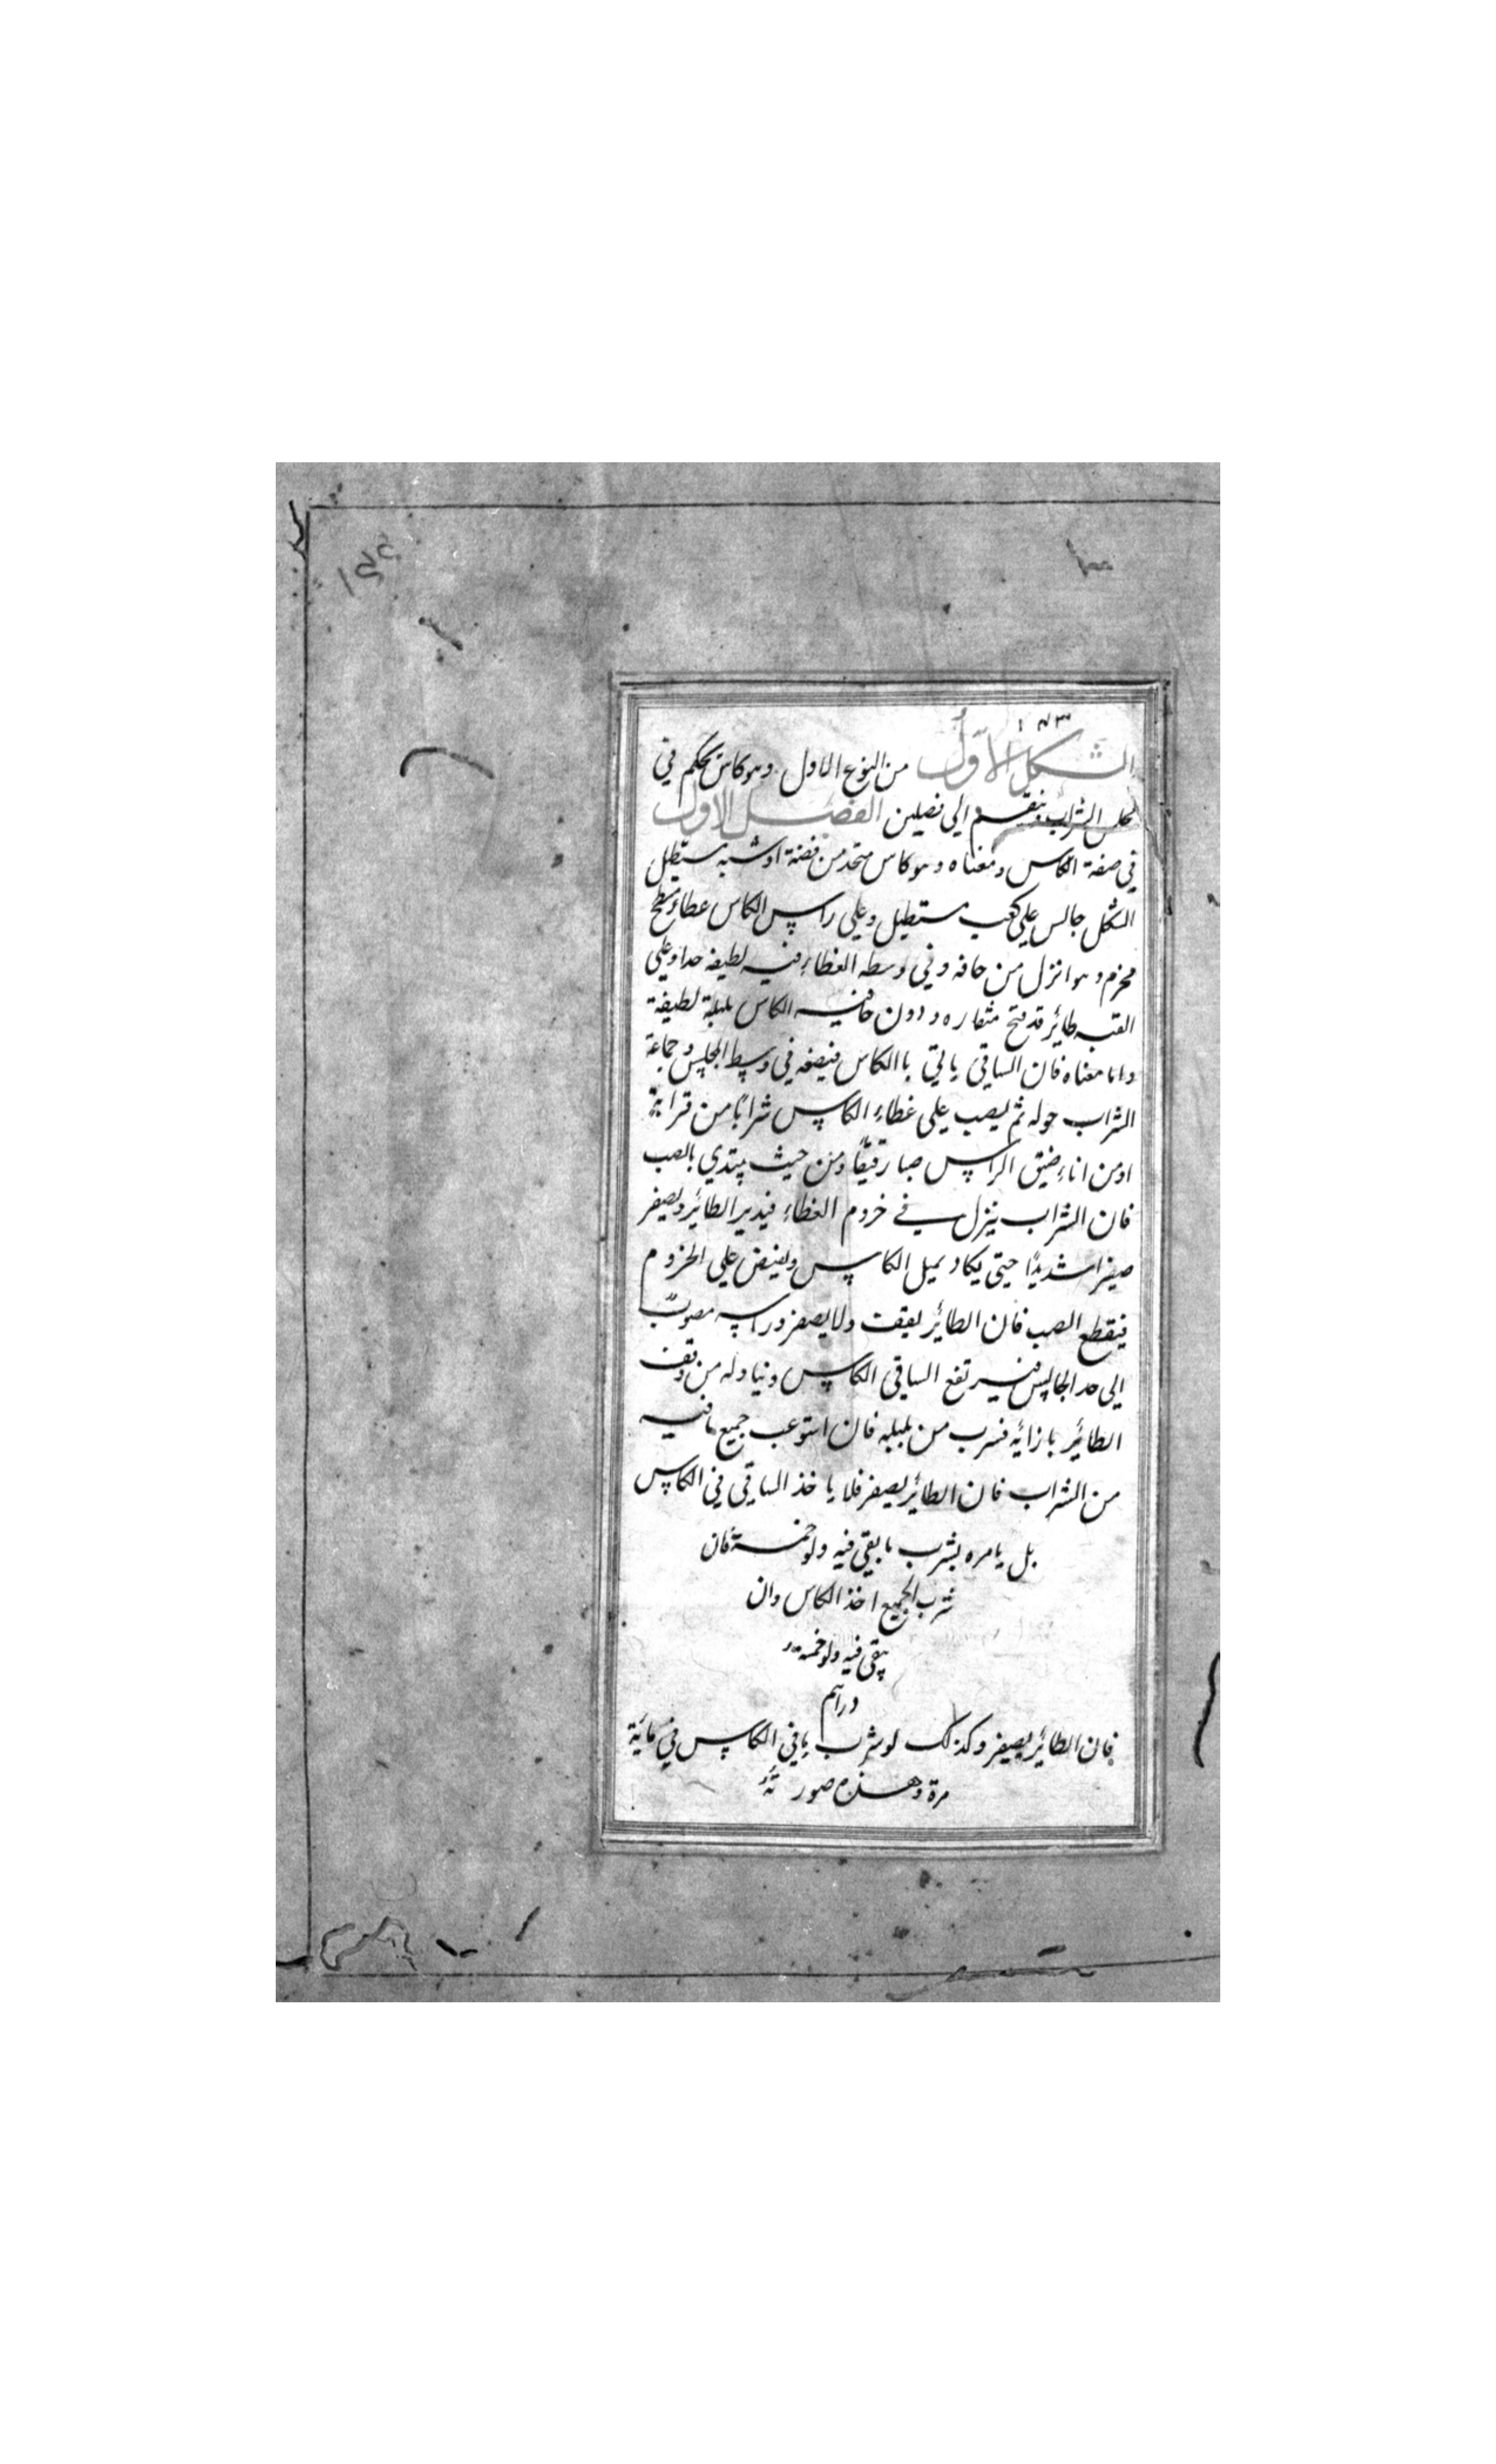 ١٧٣
الشكل الاول من النوع الاول وهو كاس يحكم في
مجلس الشراب وينقسم الي فصلين الفصل الاول
في صفة الكاس ومعناه وهو كاس متخذ من فضة او شبه مستطيل
الشكل جالس علي كعب مستطيل وعلي راس الكاس عطاء مسطح
مخرم وهو انزل من حافه وفي وسطه الغطاء قبه لطيفه جدا وعلي
القبه طائر قد فتح منقاره ودون حافيه الكاس بلبلة لطيفة
واما معناه فان الساقي ياتي باالكاس فيضعه في وسط المجلس وجماعة
الشراب حوله ثم يصب علي غطاء الكاس شرابًا من قرابة
او من اناء ضيق الراس صبا رقيقًا ومن حيث يبتدي بالصب
فان الشراب ينزل في خروم الغطاء فيدير الطائر ويصفر
صفيرا شديدًا حتي يكاد يميل الكاس ويفيض علي الخروم
فيقطع الصب فان الطائر يقف ولا يصفر وراسه مصوبّ
الي حد الجالس فيرتفع الساقي الكاس ويناوله من وقف
الطائر بازائه فيشرب من بلبله فان استوعب جميع ما فيه
من الشراب فان الطائر يصفر فلا ياخذ الساقي في الكاس
بل يامره بشرب ما بقي فيه ولو خمسة فان
شرب الجميع اخذ الكاس وان
بقي فيه ولو خمسة
دراهم
فان الطائر يصفر وكذلك لو شرب ما في الكاس في مائة
مرة وهذه صورته